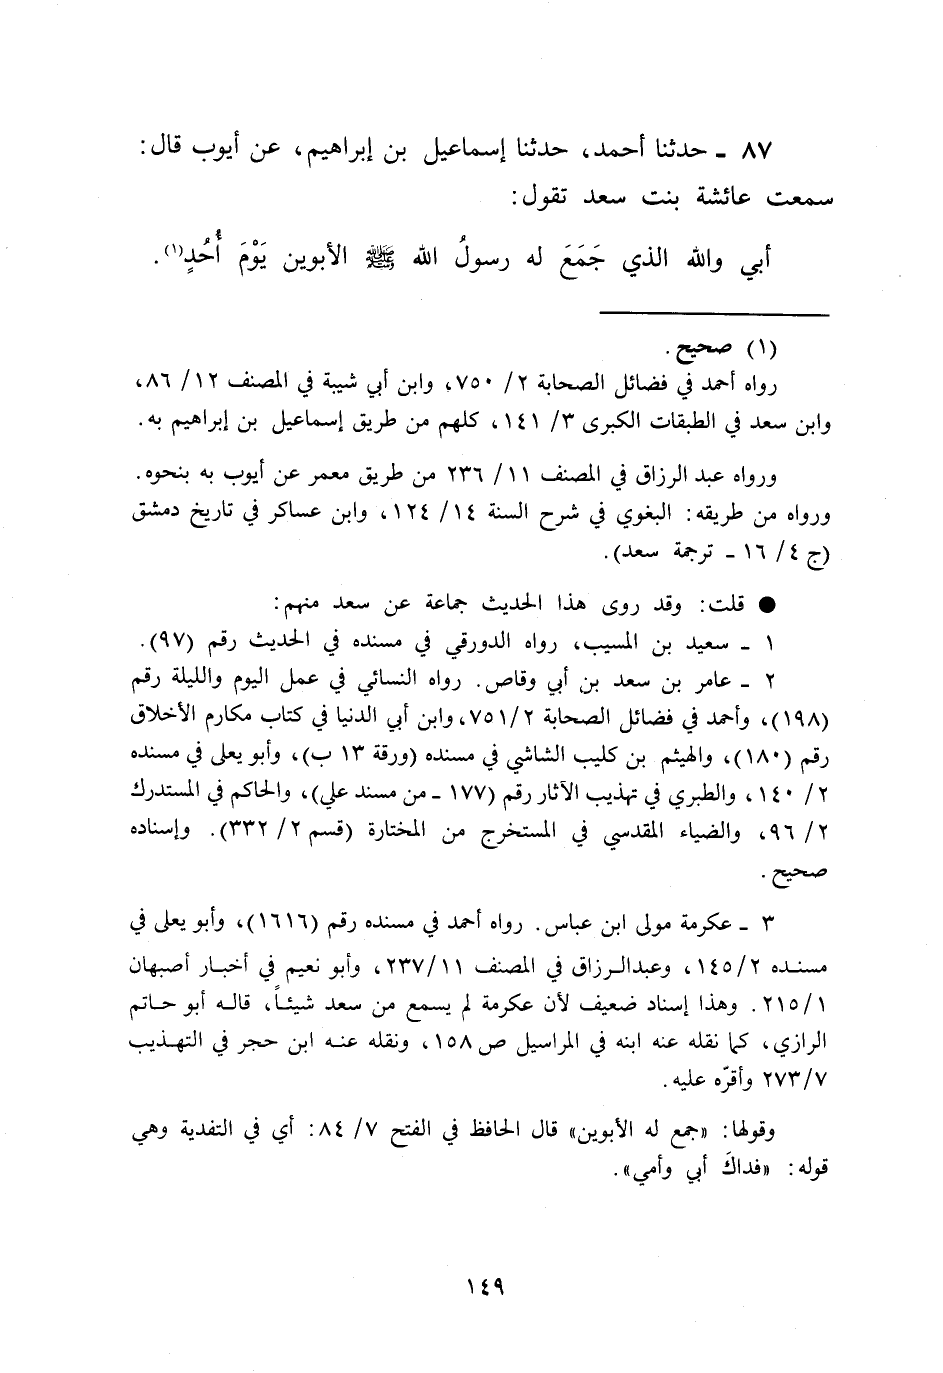 ٨٧ ـ حدثنا أحمد، حدثنا إسماعيل بن إبراهيم، عن أيوب قال:
سمعت عائشة بنت سعد تقول:
أبي والله الذي جَمَعَ له رسولُ الله ﷺ الأبوين يَوْمَ أُحُدٍ(١).
(١) صحيح.
رواه أحمد في فضائل الصحابة ٢/ ٧٥٠، وابن أبي شيبة في المصنف ١٢/ ٨٦،
وابن سعد في الطبقات الكبرى ٣/ ١٤١، كلهم من طريق إسماعيل بن إبراهيم به.
ورواه عبد الرزاق في المصنف ١١/ ٢٣٦ من طريق معمر عن أيوب به بنحوه.
ورواه من طريقه: البغوي في شرح السنة ١٤/ ١٢٤، وابن عساكر في تاريخ دمشق
(ج ٤/ ١٦ ـ ترجمة سعد).
● قلت: وقد روى هذا الحديث جماعة عن سعد منهم:
١ ـ سعيد بن المسيب، رواه الدورقي في مسنده في الحديث رقم (٩٧).
٢ ـ عامر بن سعد بن أبي وقاص. رواه النسائي في عمل اليوم والليلة رقم
(١٩٨)، وأحمد في فضائل الصحابة ٧٥١/٢، وابن أبي الدنيا في كتاب مكارم الأخلاق
رقم (١٨٠)، والهيثم بن كليب الشاشي في مسنده (ورقة ١٣ ب)، وأبو يعلى في مسنده
٢/ ١٤٠، والطبري في تهذيب الآثار رقم (١٧٧ ـ من مسند علي)، والحاكم في المستدرك
٢/ ٩٦، والضياء المقدسي في المستخرج من المختارة (قسم ٢/ ٣٣٢). وإسناده
صحيح.
٣ ـ عكرمة مولى ابن عباس. رواه أحمد في مسنده رقم (١٦١٦)، وأبو يعلى في
مسنده ١٤٥/٢، وعبدالرزاق في المصنف ٢٣٧/١١، وأبو نعيم في أخبار أصبهان
٢١٥/١. وهذا إسناد ضعيف لأن عكرمة لم يسمع من سعد شيئاً، قاله أبو حاتم
الرازي، كما نقله عنه ابنه في المراسيل ص١٥٨، ونقله عنه ابن حجر في التهذيب
٢٧٣/٧ وأقرّه عليه.
وقولها: «جمع له الأبوين» قال الحافظ في الفتح ٧/ ٨٤: أي في التفدية وهي
قوله: «فداكَ أبي وأمي».
١٤٩